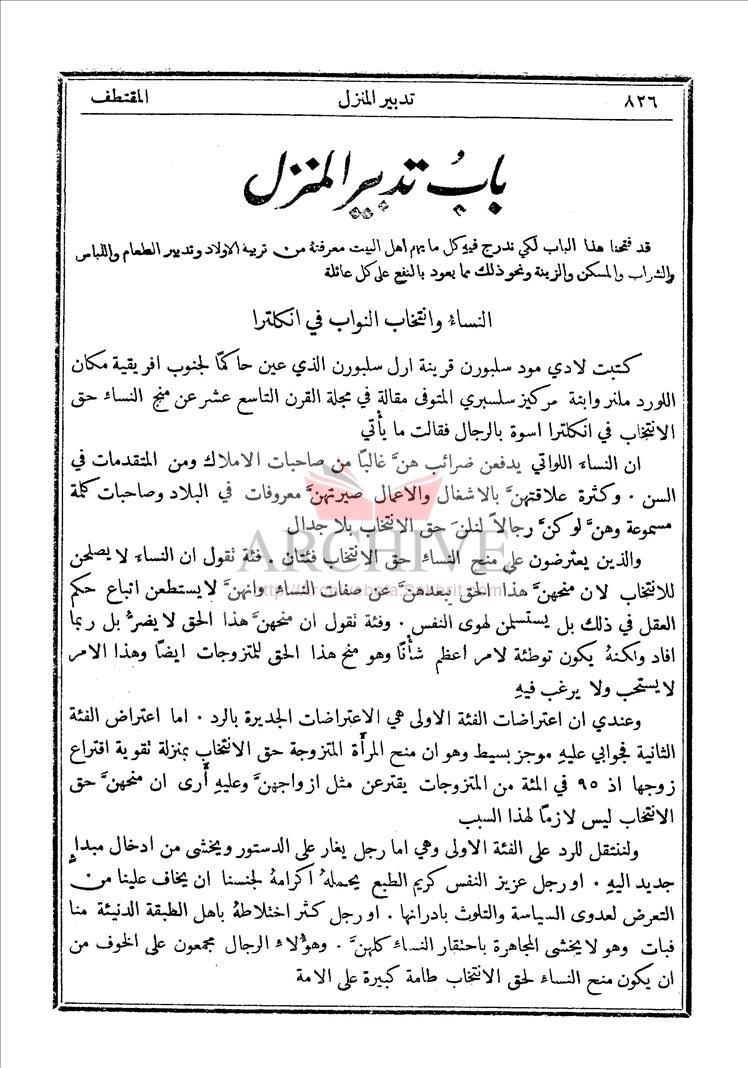 ٨٢٦ تدبير المنزل المقتطف
باب تدبير المنزل
قد فتحنا هذا الباب لكي ندرج فيه كل ما يهم اهل البيت معرفتهُ من تربية الاولاد وتدبير الطعام واللباس
والشراب والمسكن والزينة ونحو ذلك مما يعود بالنفع على كل عائلة
النساءُ وانتخاب النواب في انكلترا
كتبت لادي مود سلبورن قرينة ارل سلبورن الذي عين حاكمًا لجنوب افريقية مكان
اللورد ملنر وابنة مركيز سلسبري المتوفى مقالة في مجلة القرن التاسع عشر عن منح النساء حق
الانتخاب في انكلترا اسوة بالرجال فقالت ما يأتي
ان النساء اللواتي يدفعن ضرائب هنَّ غالبًا من صاحبات الاملاك ومن المتقدمات في
السن . وكثرة علاقتهنَّ بالاشغال والاعمال صيرتهنَّ معروفات في البلاد وصاحبات كلمة
مسموعة وهنَّ لو كنَّ رجالاً لنلنَ حق الانتخاب بلا جدال
ARCHIVE
والذين يعترضون على منح النساء حق الانتخاب فئتان . فئة نقول ان النساء لا يصلحن
للانتخاب لان منحهنَّ هذا الحق يبعدهنَّ عن صفات النساء وانهنَّ لا يستطعن اتباع حكم
العقل في ذلك بل يستسلمن لهوى النفس . وفئة نقول ان منحهنَّ هذا الحق لا يضرُّ بل ربما
افاد ولكنهُ يكون توطئة لامر اعظم شأنًا وهو منح هذا الحق للمتزوجات ايضًا وهذا الامر
لا يستحب ولا يرغب فيهِ
وعندي ان اعتراضات الفئة الاولى هي الاعتراضات الجديرة بالرد . اما اعتراض الفئة
الثانية فجوابي عليهِ موجز بسيط وهو ان منح المرأة المتزوجة حق الانتخاب بمنزلة نقوية اقتراع
زوجها اذ ٩٥ في المئة من المتزوجات يقترعن مثل ازواجهنَّ وعليهِ أرى ان منحهنَّ حق
الانتخاب ليس لازمًا لهذا السبب
ولننتقل للرد على الفئة الاولى وهي اما رجل يغار على الدستور ويخشى من ادخال مبدإٍ
جديد اليهِ . او رجل عزيز النفس كريم الطبع يحملهُ اكرامهُ لجنسنا ان يخاف علينا من
التعرض لعدوى السياسة والتلوث بادرانها . او رجل كثر اختلاطهُ باهل الطبقة الدنيئة منا
فبات وهو لا يخشى المجاهرة باحتقار النساء كلهنَّ . وهؤُلاء الرجال مجمعون على الخوف من
ان يكون منح النساء لحق الانتخاب طامة كبيرة على الامة